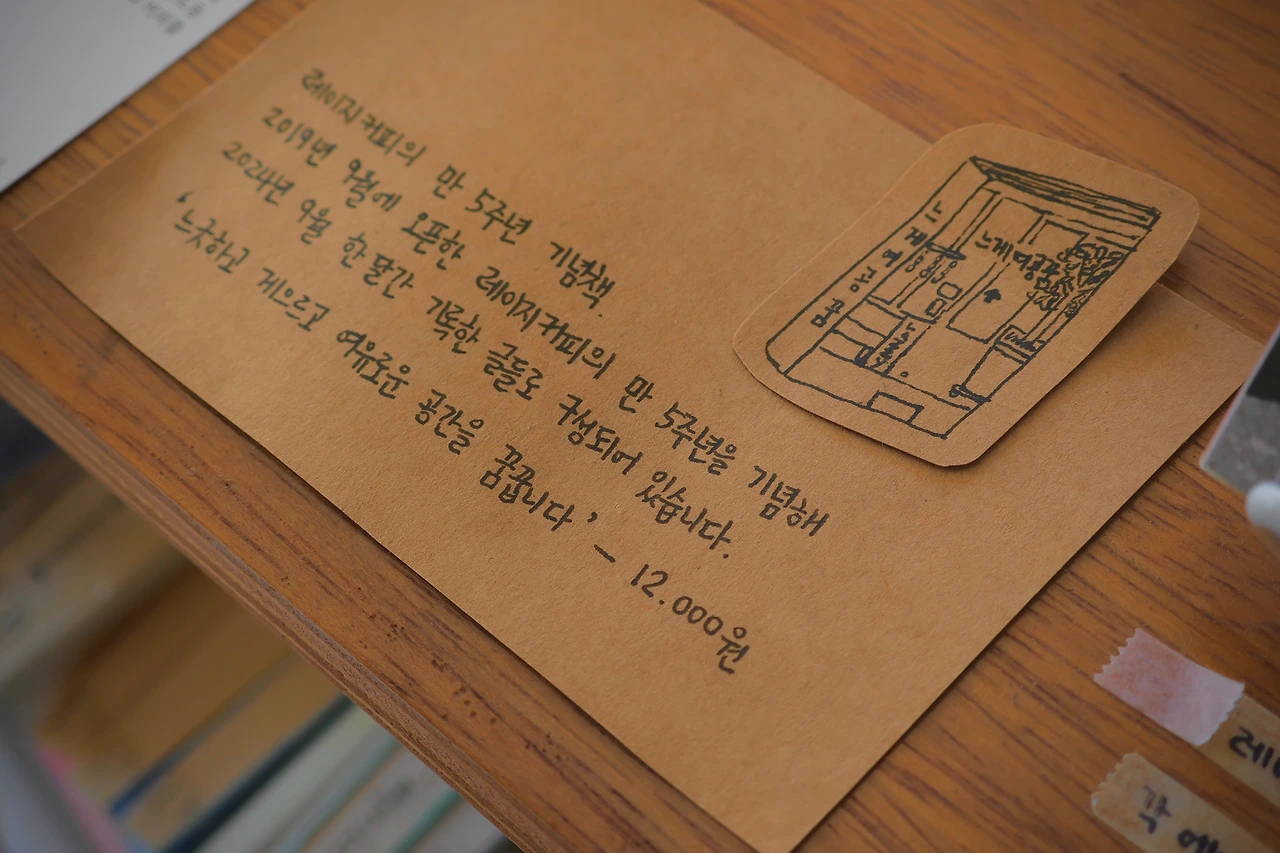 레이지커피의 만 5주년 기념책.
2019년 9월에 오픈한 레이지커피의 만 5주년을 기념해
2024년 9월 한달간 기록한 글들로 구성되어 있습니다.
'느긋하고 게으르고 여유로운 공간을 꿈꿉니다' - 12.000원
느게여공꿈
느게여공꿈
각